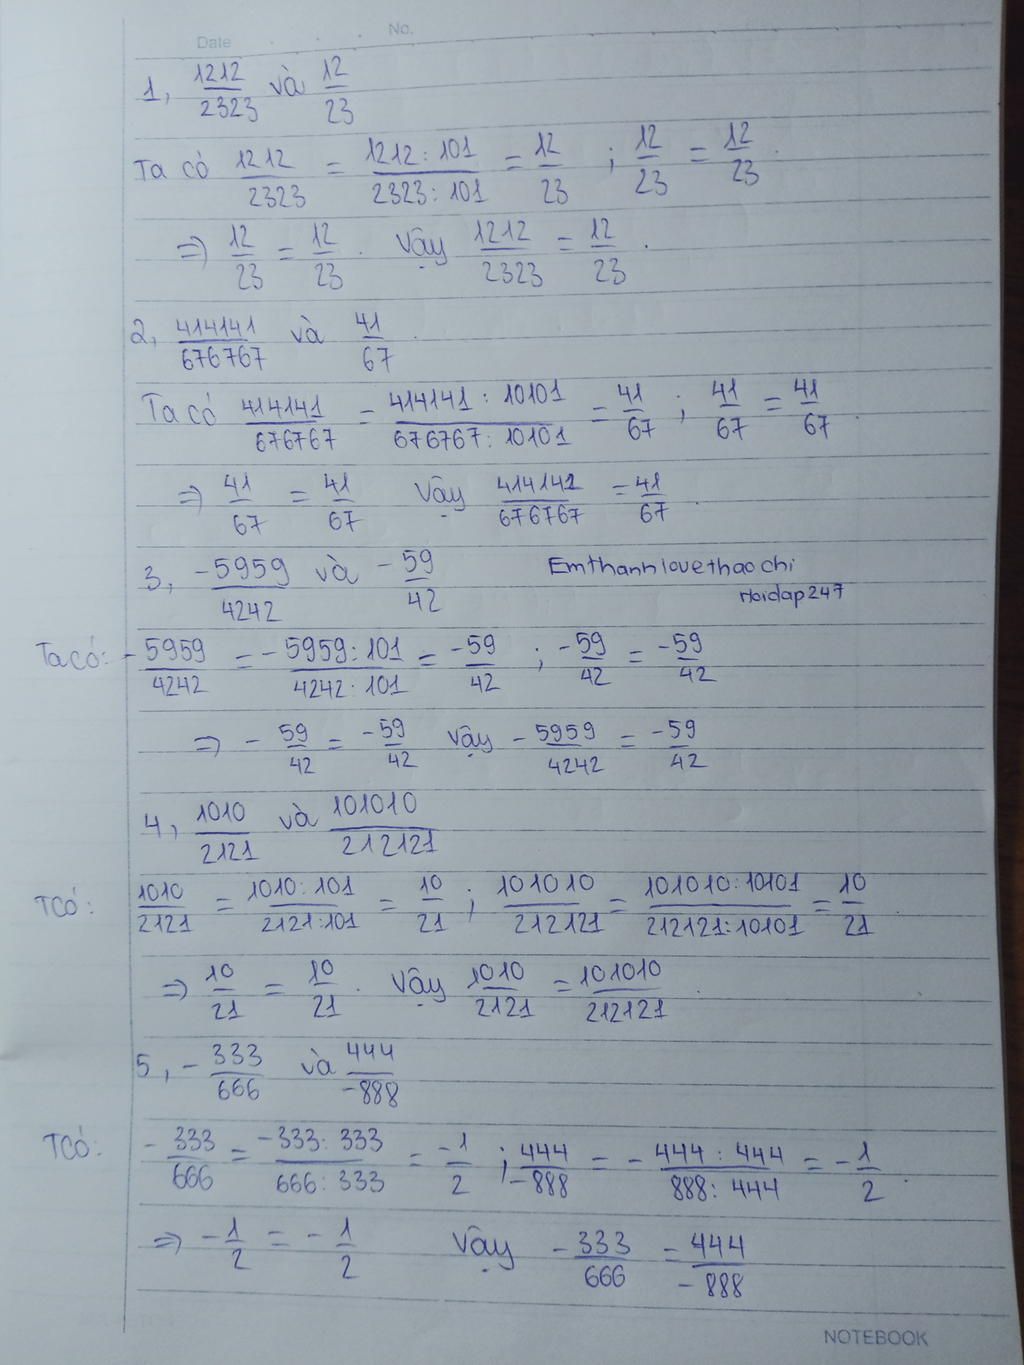 Date No.
1, 1212/2323 và 12/23
Ta có 1212/2323 = 1212:101/2323:101 = 12/23 ; 12/23 = 12/23.
⇒ 12/23 = 12/23. Vậy 1212/2323 = 12/23.
2, 414141/676767 và 41/67.
Ta có 414141/676767 = 414141:10101/676767:10101 = 41/67 ; 41/67 = 41/67.
⇒ 41/67 = 41/67 Vậy 414141/676767 = 41/67.
3, -5959/4242 và -59/42
Emthanhlovethaochi
Hoidap247
Ta có: -5959/4242 = -5959:101/4242:101 = -59/42 ; -59/42 = -59/42
⇒ -59/42 = -59/42 Vậy -5959/4242 = -59/42
4, 1010/2121 và 101010/212121
TCó: 1010/2121 = 1010:101/2121:101 = 10/21 ; 101010/212121 = 101010:10101/212121:10101 = 10/21.
⇒ 10/21 = 10/21. Vậy 1010/2121 = 101010/212121.
5, -333/666 và 444/-888
TCó: -333/666 = -333:333/666:333 = -1/2 ; 444/-888 = -444:444/888:444 = -1/2.
⇒ -1/2 = -1/2 Vậy -333/666 = 444/-888
NOTEBOOK